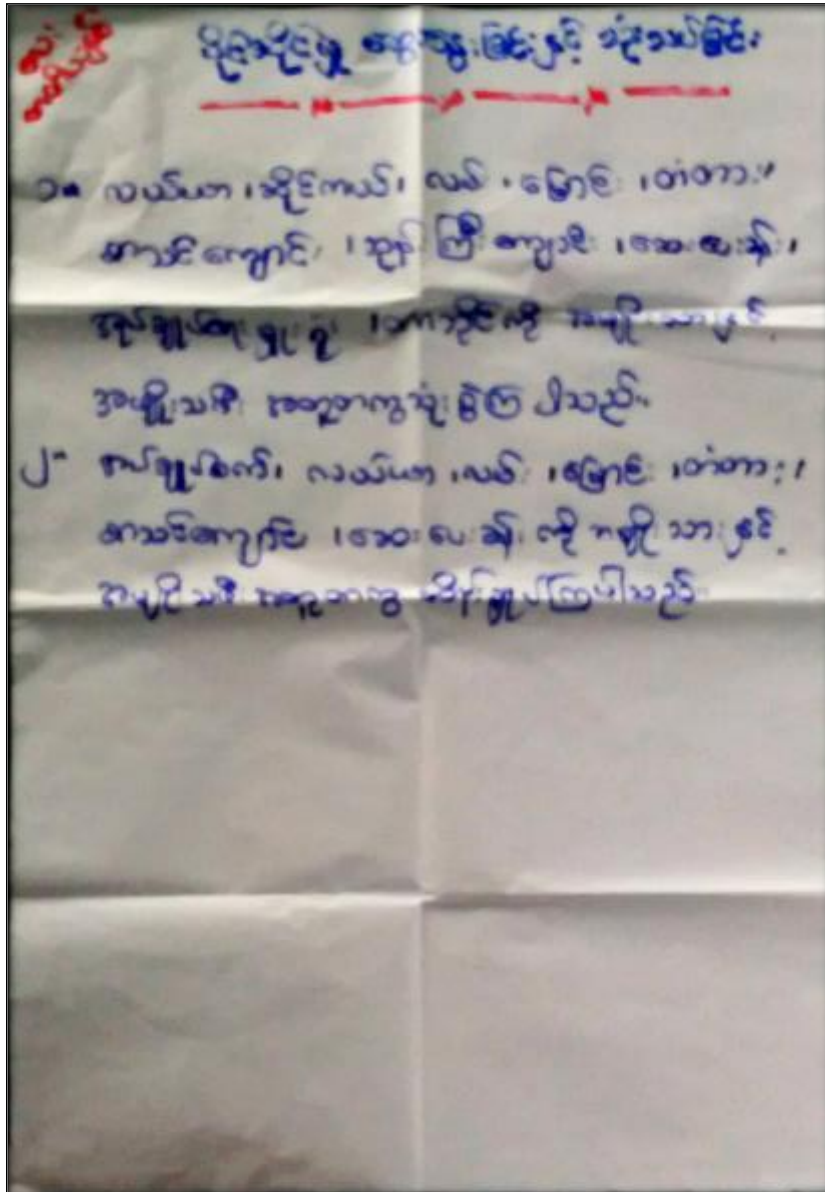 ပိုင်ဆိုင်မှု ဆွေးနွေးခြင်းနှင့် သုံးသပ်ခြင်း
၁။ လယ်ယာ ၊ ဆိုင်ကယ်၊ လမ်း ၊ မြောင်း ၊ တံတား၊
စာသင်ကျောင်း ၊ ဘုန်းကြီးကျောင်း ၊ ဆေးပေးခန်း ၊
အုပ်ချုပ်ရေးမှူးရုံး ၊ ကို အမျိုးသားနှင့်
အမျိုးသမီး အတူတကွသုံးစွဲကြပါသည်။
၂။ စပ်ချုပ်စက်၊ လယ်ယာ ၊ လမ်း ၊ မြောင်း ၊ တံတား ၊
စာသင်ကျောင်း ၊ ဆေးပေးခန်း ကို အမျိုးသားနှင့်
အမျိုးသမီး အတူတကွ ထိန်းချုပ်ကြပါသည်